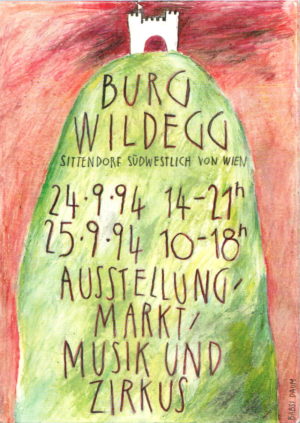 BURG
WILDEGG
SITTENDORF SÜDWESTLICH VON WIEN
24·9·94 14-21h
25·9·94 10-18h
AUSSTELLUNG/
MARKT/
MUSIK UND
ZIRKUS
BIRGI DAUM